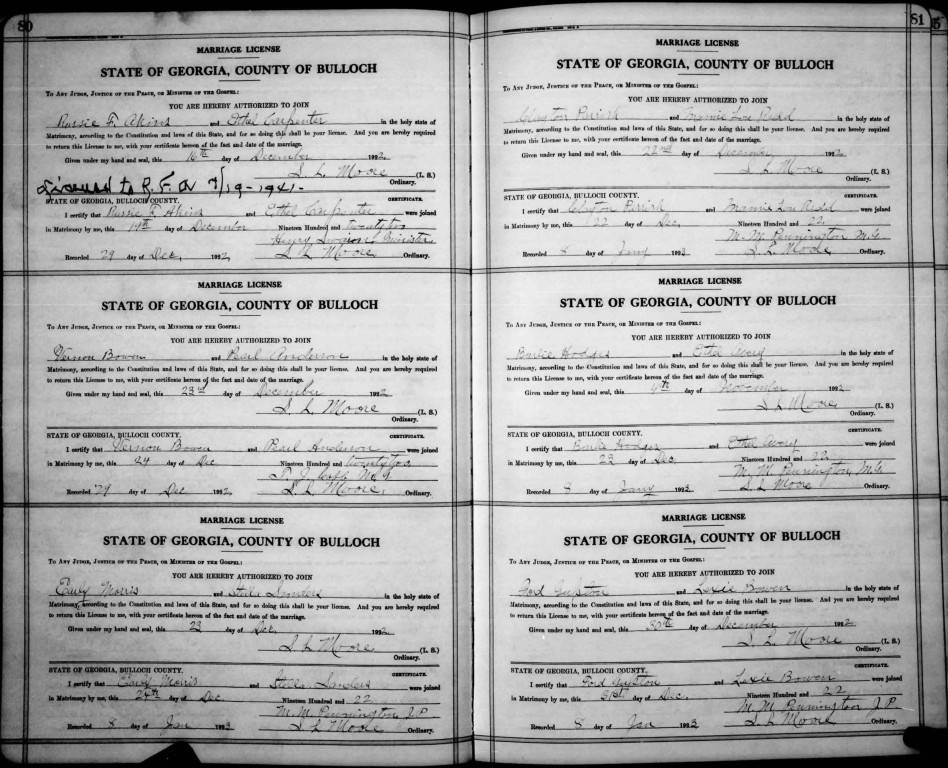 80
MARRIAGE LICENSE
STATE OF GEORGIA, COUNTY OF BULLOCH
To Any Judge, Justice of the Peace, or Minister of the Gospel:
YOU ARE HEREBY AUTHORIZED TO JOIN
Rossie F. Akins and Ethel Carpenter in the holy state of
Matrimony, according to the Constitution and laws of this State, and for so doing this shall be your license. And you are hereby required
to return this License to me, with your certificate hereon of the fact and date of the marriage.
Given under my hand and seal, this 16th day of December 1922
S. L. Moore (L. S.)
Ordinary.
Licensed to R. F. A 7/19-1941-
STATE OF GEORGIA, BULLOCH COUNTY. CERTIFICATE.
I certify that Rossie F. Akins and Ethel Carpenter were joined
in Matrimony by me, this 19th day of December Nineteen Hundred and twenty two
Henry Minister
Recorded 29 day of Dec, 1922 S. L. Moore Ordinary.
MARRIAGE LICENSE
STATE OF GEORGIA, COUNTY OF BULLOCH
To Any Judge, Justice of the Peace, or Minister of the Gospel:
YOU ARE HEREBY AUTHORIZED TO JOIN
Vernon Bowen and Pearl Anderson in the holy state of
Matrimony, according to the Constitution and laws of this State, and for so doing this shall be your license. And you are hereby required
to return this License to me, with your certificate hereon of the fact and date of the marriage.
Given under my hand and seal, this 23rd day of December 1922
S. L. Moore (L. S.)
Ordinary.
STATE OF GEORGIA, BULLOCH COUNTY. CERTIFICATE.
I certify that Vernon Bowen and Pearl Anderson were joined
in Matrimony by me, this 24 day of Dec Nineteen Hundred and twenty two
T. J. Cobb M. G
Recorded 29 day of Dec 1922 S. L. Moore, Ordinary.
MARRIAGE LICENSE
STATE OF GEORGIA, COUNTY OF BULLOCH
To Any Judge, Justice of the Peace, or Minister of the Gospel:
YOU ARE HEREBY AUTHORIZED TO JOIN
Early Morris and Stella Sanders in the holy state of
Matrimony, according to the Constitution and laws of this State, and for so doing this shall be your license. And you are hereby required
to return this License to me, with your certificate hereon of the fact and date of the marriage.
Given under my hand and seal, this 23 day of Dec. 1922
S. L. Moore (L. S.)
Ordinary.
STATE OF GEORGIA, BULLOCH COUNTY. CERTIFICATE.
I certify that Early Morris and Stella Sanders were joined
in Matrimony by me, this 24th day of Dec Nineteen Hundred and 22
M. M. Pennington J. P.
Recorded 8 day of Jan 1923 S. L. Moore Ordinary.
81
MARRIAGE LICENSE
STATE OF GEORGIA, COUNTY OF BULLOCH
To Any Judge, Justice of the Peace, or Minister of the Gospel:
YOU ARE HEREBY AUTHORIZED TO JOIN
Clayton Parrish and Mamie Lou Redd in the holy state of
Matrimony, according to the Constitution and laws of this State, and for so doing this shall be your license. And you are hereby required
to return this License to me, with your certificate hereon of the fact and date of the marriage.
Given under my hand and seal, this 22nd day of December 1922
S. L. Moore (L. S.)
Ordinary.
STATE OF GEORGIA, BULLOCH COUNTY. CERTIFICATE.
I certify that Clayton Parrish and Mamie Lou Redd were joined
in Matrimony by me, this 22 day of Dec, Nineteen Hundred and 22
M. M. Pennington M. G.
Recorded 8 day of Jany 1923 S. L. Moore, Ordinary.
MARRIAGE LICENSE
STATE OF GEORGIA, COUNTY OF BULLOCH
To Any Judge, Justice of the Peace, or Minister of the Gospel:
YOU ARE HEREBY AUTHORIZED TO JOIN
Hodges and Ethel in the holy state of
Matrimony, according to the Constitution and laws of this State, and for so doing this shall be your license. And you are hereby required
to return this License to me, with your certificate hereon of the fact and date of the marriage.
Given under my hand and seal, this day of November 1922
S. L. Moore (L. S.)
Ordinary.
STATE OF GEORGIA, BULLOCH COUNTY. CERTIFICATE.
I certify that Hodges and Ethel were joined
in Matrimony by me, this 22 day of Dec, Nineteen Hundred and 22
M. M. Pennington, M. G
Recorded 8 day of Jany 1923 S. L. Moore Ordinary.
MARRIAGE LICENSE
STATE OF GEORGIA, COUNTY OF BULLOCH
To Any Judge, Justice of the Peace, or Minister of the Gospel:
YOU ARE HEREBY AUTHORIZED TO JOIN
Ford Gupton and Lexie Bowen in the holy state of
Matrimony, according to the Constitution and laws of this State, and for so doing this shall be your license. And you are hereby required
to return this License to me, with your certificate hereon of the fact and date of the marriage.
Given under my hand and seal, this 30th day of December 1922
S. L. Moore (L. S.)
Ordinary.
STATE OF GEORGIA, BULLOCH COUNTY. CERTIFICATE.
I certify that Ford Gupton and Lexie Bowen were joined
in Matrimony by me, this 31st day of Dec. Nineteen Hundred and 22
M. M. Pennington J. P.
Recorded 8 day of Jan 1923 S. L. Moore Ordinary.